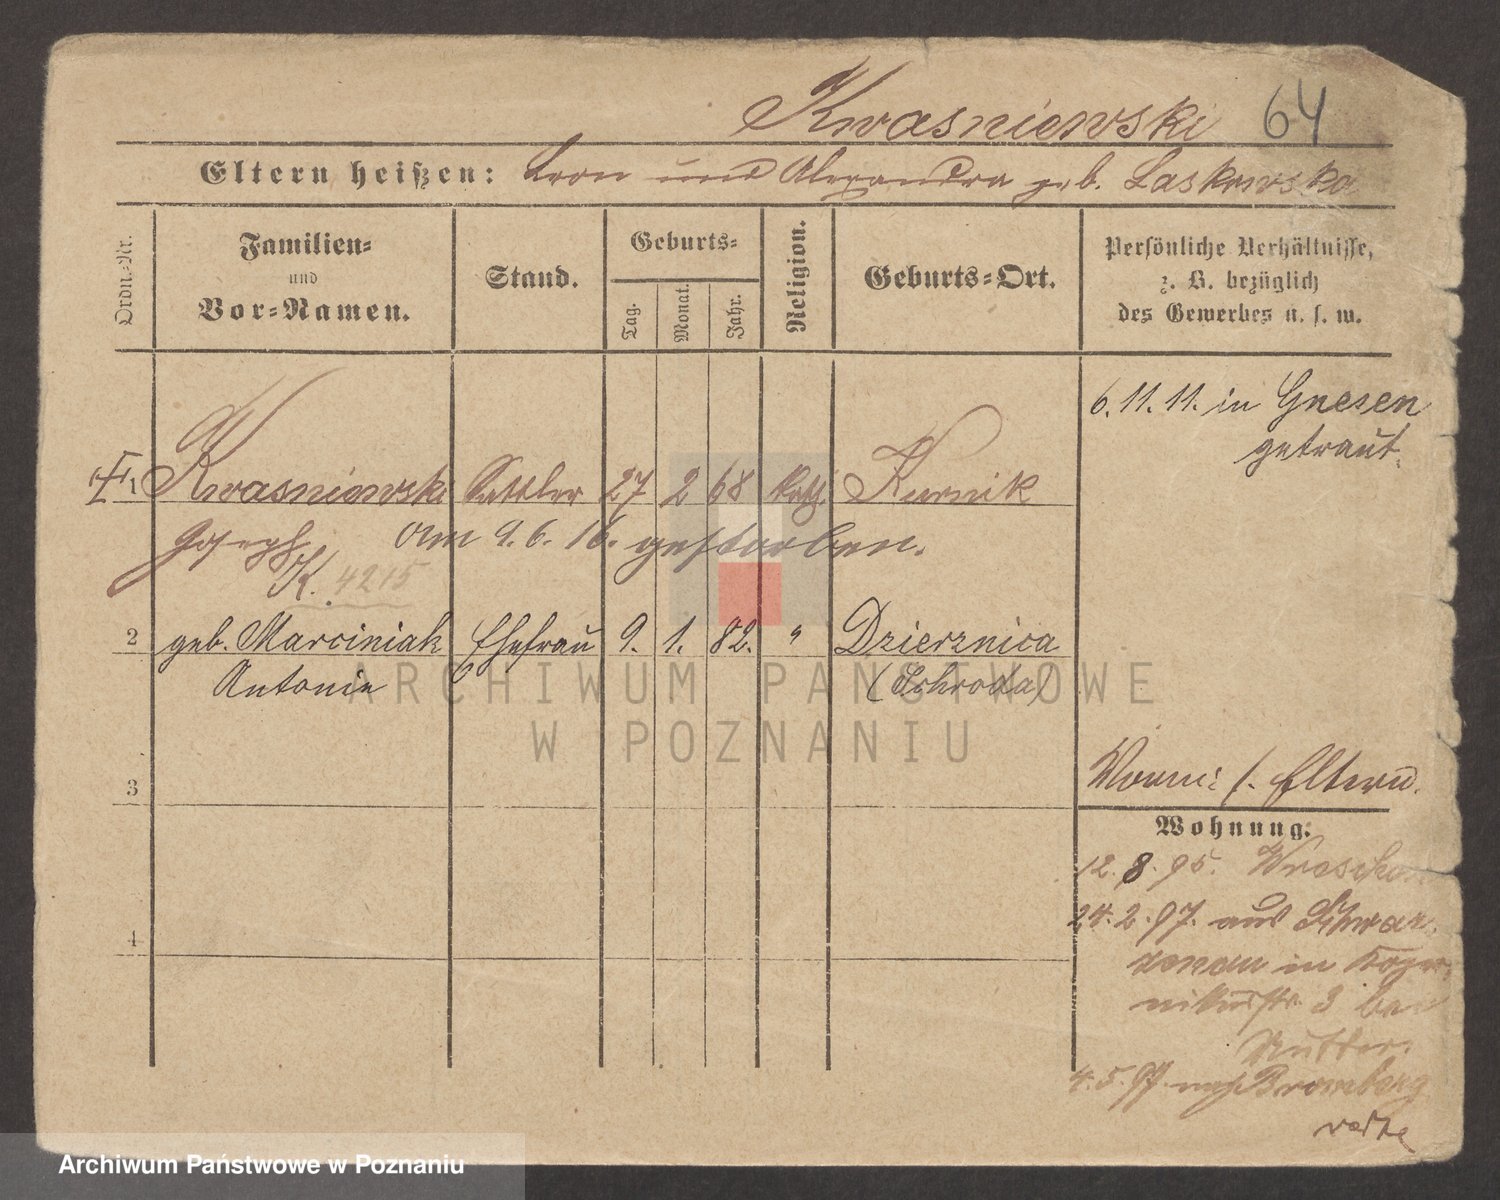 Kwasniewski 64
Eltern heißen: Leon und Alexandra geb. Laskowska
Ordn.-Nr.
Familien-
und
Vor-Namen.
Stand.
Geburts-
Tag.
Monat.
Jahr.
Religion.
Geburts-Ort.
Persönliche Verhältnisse,
z. B. bezüglich
des Gewerbes u. s. w.
6.11.11. in Gnesen
getraut.
1 Kwasniewski Sattler 27 2 68 kath. Kurnik
Joseph am 9.6.16. gestorben.
K. 4215
2 geb. Marciniak Ehefrau 9. 1. 82. " Dzierznica
Antonie (Schroda)
3
Vorm: s. Eltern.
Wohnung.
12.8.95. Wreschen
24.2.97. aus
in
3 bei
Mutter.
4
4.5.97. nach Bromberg
verte
ARCHIWUM PAŃSTWOWE
W POZNANIU
Archiwum Państwowe w Poznaniu